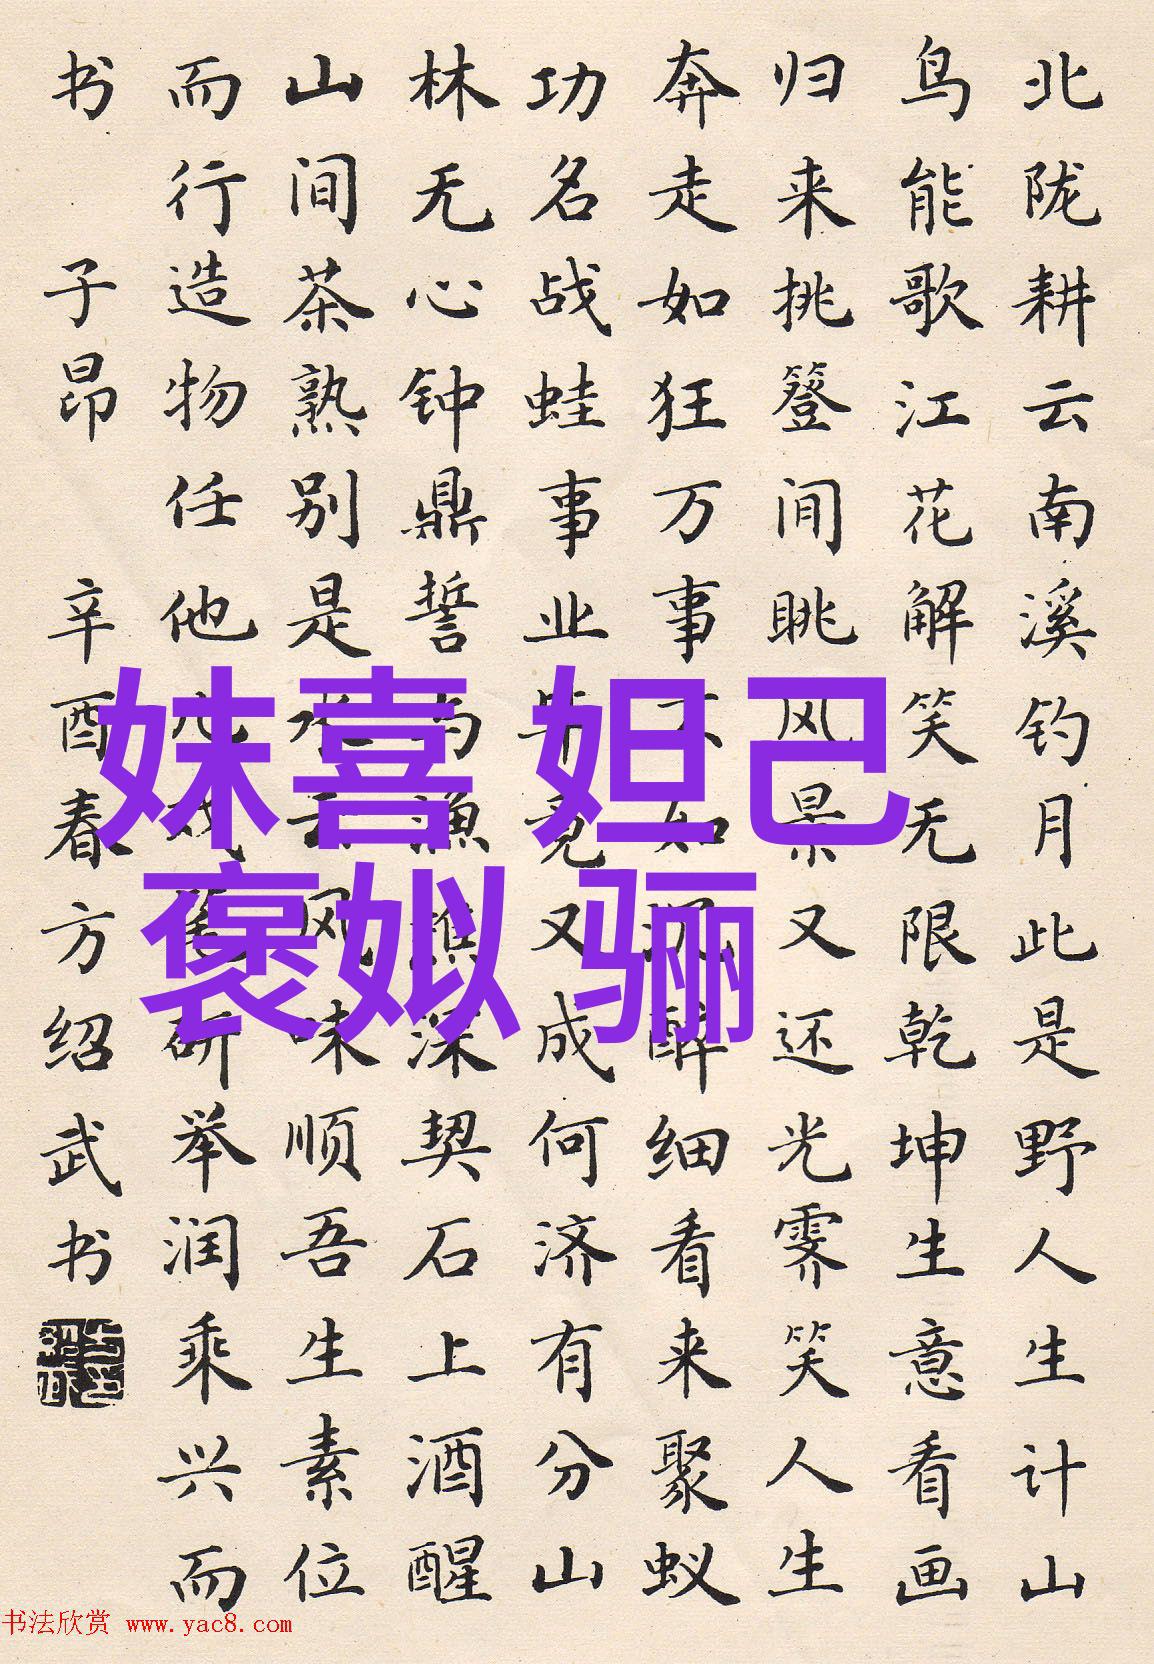 北陇耕云南溪钓月此是野人生计山
鸟能歌江花解笑无限乾坤生意看画
归来挑簦间眺风景又还光霁笑人生
奔走如狂万事不如沉醉细看来聚蚁
功名战蛙事业毕竟又成何济有分山
林无心钟鼎誓与渔樵深契石上酒醒
山间茶熟别是水云风味顺吾生素位
而行造物任他戏研举润乘兴而
书 子昂 辛酉春方绍武书
妹喜 妲己
褒姒 骊
书法欣赏 www.yac8.com